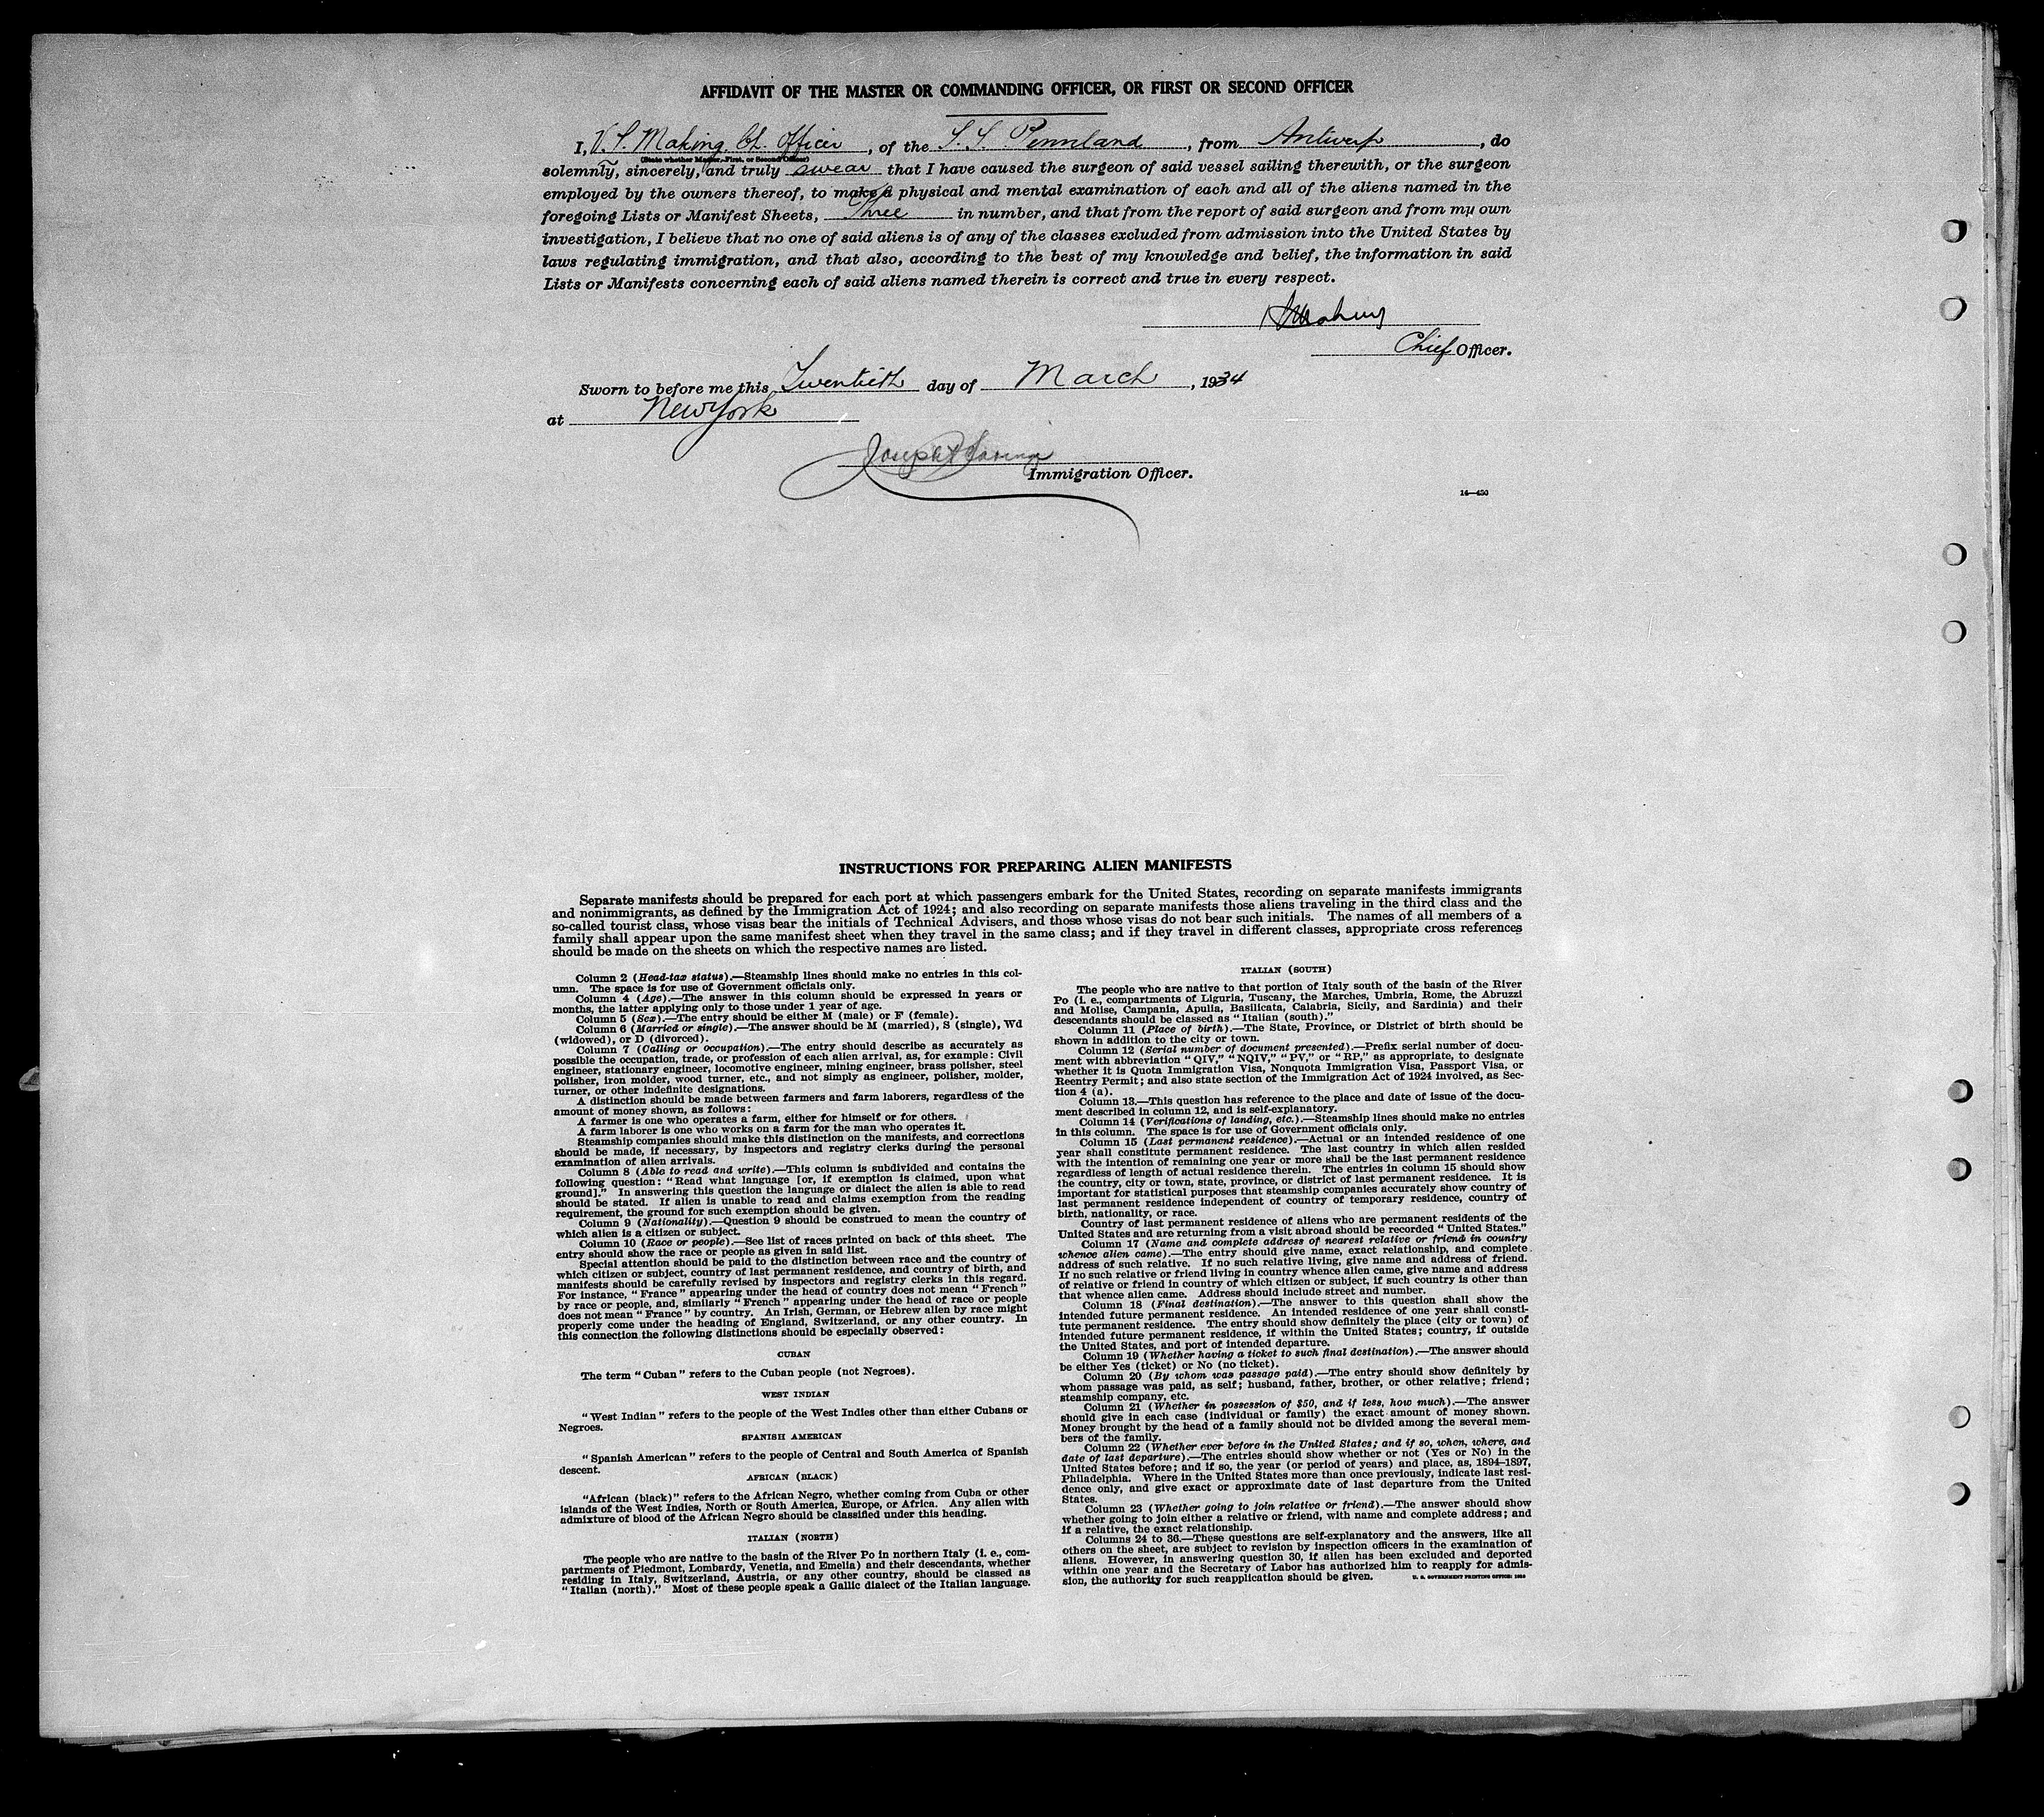 AFFIDAVIT OF THE MASTER OR COMMANDING OFFICER, OR FIRST OR SECOND OFFICER
I, V. S. Making. Ch. Officer, of the S. S. Pennland, from Antwerp, do
(State whether Master, First, or Second Officer)
solemnly, sincerely, and truly swear that I have caused the surgeon of said vessel sailing therewith, or the surgeon
employed by the owners thereof, to make a physical and mental examination of each and all of the aliens named in the
foregoing Lists or Manifest Sheets, Three in number, and that from the report of said surgeon and from my own
investigation, I believe that no one of said aliens is of any of the classes excluded from admission into the United States by
laws regulating immigration, and that also, according to the best of my knowledge and belief, the information in said
Lists or Manifests concerning each of said aliens named therein is correct and true in every respect.
Chief Officer.
Sworn to before me this Twentieth day of March, 1934
at New York
Joseph
Immigration Officer.
14—430
INSTRUCTIONS FOR PREPARING ALIEN MANIFESTS
Separate manifests should be prepared for each port at which passengers embark for the United States, recording on separate manifests immigrants
and nonimmigrants, as defined by the Immigration Act of 1924; and also recording on separate manifests those aliens traveling in the third class and the
so-called tourist class, whose visas bear the initials of Technical Advisers, and those whose visas do not bear such initials. The names of all members of a
family shall appear upon the same manifest sheet when they travel in the same class; and if they travel in different classes, appropriate cross references
should be made on the sheets on which the respective names are listed.
Column 2 (Head-tax status).—Steamship lines should make no entries in this col-
umn. The space is for use of Government officials only.
Column 4 (Age).—The answer in this column should be expressed in years or
months, the latter applying only to those under 1 year of age.
Column 5 (Sex).—The entry should be either M (male) or F (female).
Column 6 (Married or single).—The answer should be M (married), S (single), Wd
(widowed), or D (divorced).
Column 7 (Calling or occupation).—The entry should describe as accurately as
possible the occupation, trade, or profession of each alien arrival, as, for example: Civil
engineer, stationary engineer, locomotive engineer, mining engineer, brass polisher, steel
polisher, iron molder, wood turner, etc., and not simply as engineer, polisher, molder,
turner, or other indefinite designations.
A distinction should be made between farmers and farm laborers, regardless of the
amount of money shown, as follows:
A farmer is one who operates a farm, either for himself or for others.
A farm laborer is one who works on a farm for the man who operates it.
Steamship companies should make this distinction on the manifests, and corrections
should be made, if necessary, by inspectors and registry clerks during the personal
examination of alien arrivals.
Column 8 (Able to read and write).—This column is subdivided and contains the
following question: "Read what language [or, if exemption is claimed, upon what
ground]." In answering this question the language or dialect the alien is able to read
should be stated. If alien is unable to read and claims exemption from the reading
requirement, the ground for such exemption should be given.
Column 9 (Nationality).—Question 9 should be construed to mean the country of
which alien is a citizen or subject.
Column 10 (Race or people).—See list of races printed on back of this sheet. The
entry should show the race or people as given in said list.
Special attention should be paid to the distinction between race and the country of
which citizen or subject, country of last permanent residence, and country of birth, and
manifests should be carefully revised by inspectors and registry clerks in this regard.
For instance, "France" appearing under the head of country does not mean "French"
by race or people, and, similarly "French" appearing under the head of race or people
does not mean "France" by country. An Irish, German, or Hebrew alien by race might
properly come under the heading of England, Switzerland, or any other country. In
this connection the following distinctions should be especially observed:
CUBAN
The term "Cuban" refers to the Cuban people (not Negroes).
WEST INDIAN
"West Indian" refers to the people of the West Indies other than either Cubans or
Negroes.
SPANISH AMERICAN
"Spanish American" refers to the people of Central and South America of Spanish
descent.
AFRICAN (BLACK)
"African (black)" refers to the African Negro, whether coming from Cuba or other
islands of the West Indies, North or South America, Europe, or Africa. Any alien with
admixture of blood of the African Negro should be classified under this heading.
ITALIAN (NORTH)
The people who are native to the basin of the River Po in northern Italy (i. e., com-
partments of Piedmont, Lombardy, Venetia, and Emelia) and their descendants, whether
residing in Italy, Switzerland, Austria, or any other country, should be classed as
"Italian (north)." Most of these people speak a Gallic dialect of the Italian language.
ITALIAN (SOUTH)
The people who are native to that portion of Italy south of the basin of the River
Po (i. e., compartments of Liguria, Tuscany, the Marches, Umbria, Rome, the Abruzzi
and Molise, Campania, Apulia, Basilicata, Calabria, Sicily, and Sardinia) and their
descendants should be classed as "Italian (south)."
Column 11 (Place of birth).—The State, Province, or District of birth should be
shown in addition to the city or town.
Column 12 (Serial number of document presented).—Prefix serial number of docu-
ment with abbreviation "QIV," "NQIV," "PV," or "RP," as appropriate, to designate
whether it is Quota Immigration Visa, Nonquota Immigration Visa, Passport Visa, or
Reentry Permit; and also state section of the Immigration Act of 1924 involved, as Sec-
tion 4 (a).
Column 13.—This question has reference to the place and date of issue of the docu-
ment described in column 12, and is self-explanatory.
Column 14 (Verifications of landing, etc.).—Steamship lines should make no entries
in this column. The space is for use of Government officials only.
Column 15 (Last permanent residence).—Actual or an intended residence of one
year shall constitute permanent residence. The last country in which alien resided
with the intention of remaining one year or more shall be the last permanent residence
regardless of length of actual residence therein. The entries in column 15 should show
the country, city or town, state, province, or district of last permanent residence. It is
important for statistical purposes that steamship companies accurately show country of
last permanent residence independent of country of temporary residence, country of
birth, nationality, or race.
Country of last permanent residence of aliens who are permanent residents of the
United States and are returning from a visit abroad should be recorded "United States."
Column 17 (Name and complete address of nearest relative or friend in country
whence alien came).—The entry should give name, exact relationship, and complete
address of such relative. If no such relative living, give name and address of friend.
If no such relative or friend living in country whence alien came, give name and address
of relative or friend in country of which citizen or subject, if such country is other than
that whence alien came. Address should include street and number.
Column 18 (Final destination).—The answer to this question shall show the
intended future permanent residence. An intended residence of one year shall consti-
tute permanent residence. The entry should show definitely the place (city or town) of
intended future permanent residence, if within the United States; country, if outside
the United States, and port of intended departure.
Column 19 (Whether having a ticket to such final destination).—The answer should
be either Yes (ticket) or No (no ticket).
Column 20 (By whom was passage paid).—The entry should show definitely by
whom passage was paid, as self; husband, father, brother, or other relative; friend;
steamship company, etc.
Column 21 (Whether in possession of $50, and if less, how much).—The answer
should give in each case (individual or family) the exact amount of money shown.
Money brought by the head of a family should not be divided among the several mem-
bers of the family.
Column 22 (Whether ever before in the United States; and if so, when, where, and
date of last departure).—The entries should show whether or not (Yes or No) in the
United States before; and if so, the year (or period of years) and place, as, 1894–1897,
Philadelphia. Where in the United States more than once previously, indicate last resi-
dence only, and give exact or approximate date of last departure from the United
States.
Column 23 (Whether going to join relative or friend).—The answer should show
whether going to join either a relative or friend, with name and complete address; and
if a relative, the exact relationship.
Columns 24 to 36.—These questions are self-explanatory and the answers, like all
others on the sheet, are subject to revision by inspection officers in the examination of
aliens. However, in answering question 30, if alien has been excluded and deported
within one year and the Secretary of Labor has authorized him to reapply for admis-
sion, the authority for such reapplication should be given.
U. S. GOVERNMENT PRINTING OFFICE: